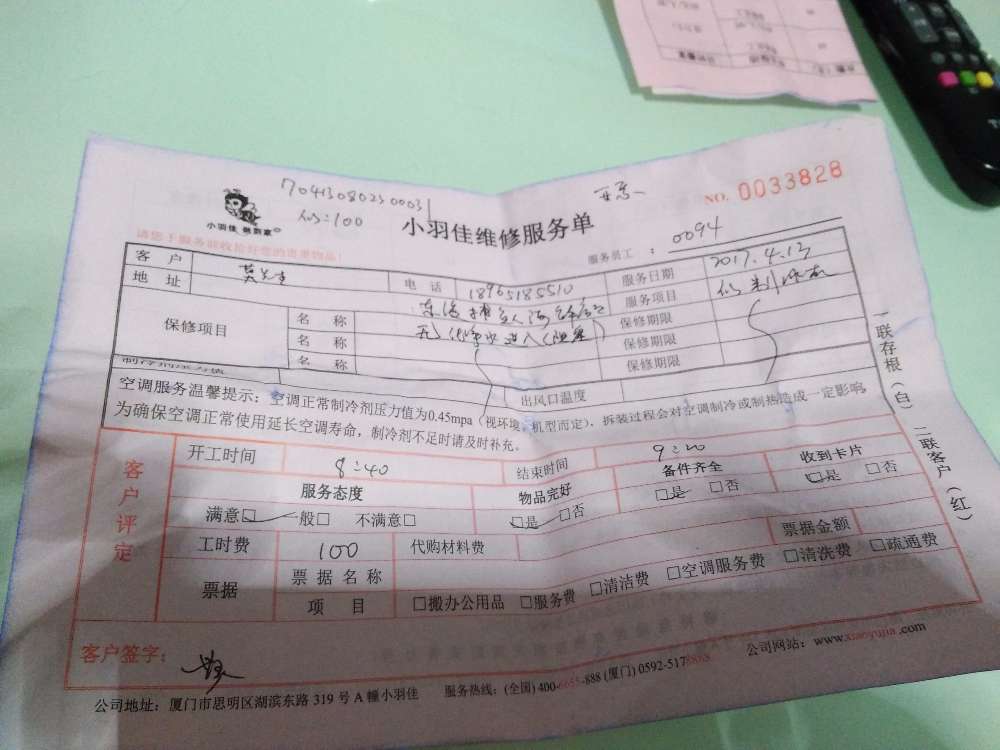 70413080230003
100
NO. 0033828
小羽佳
小羽佳维修服务单
请您于服务前收拾好您的贵重物品!
服务员工： 0094
客户 电话 18965185510 服务日期 2017.4.13
地址 服务项目
保修项目 名称 保修期限
名称 保修期限
名称 保修期限
出风口温度
空调服务温馨提示：空调正常制冷剂压力值为0.45mpa（视环境、机型而定），拆装过程会对空调制冷或制热造成一定影响
为确保空调正常使用延长空调寿命，制冷剂不足时请及时补充。
一联存根（白） 二联客户（红）
客户评定
开工时间 8:40 结束时间 9:20
服务态度 物品完好 备件齐全 收到卡片
满意□ 一般□ 不满意□ □是 □否 □是 □否 □是 □否
工时费 100 代购材料费 票据金额
票据 票据名称
项目 □搬办公用品 □服务费 □清洁费 □空调服务费 □清洗费 □疏通费
客户签字：
公司地址：厦门市思明区湖滨东路 319 号 A 幢小羽佳 服务热线：(全国) 400-6655-888 (厦门) 0592-5178888 公司网站：www.xiaoyujia.com